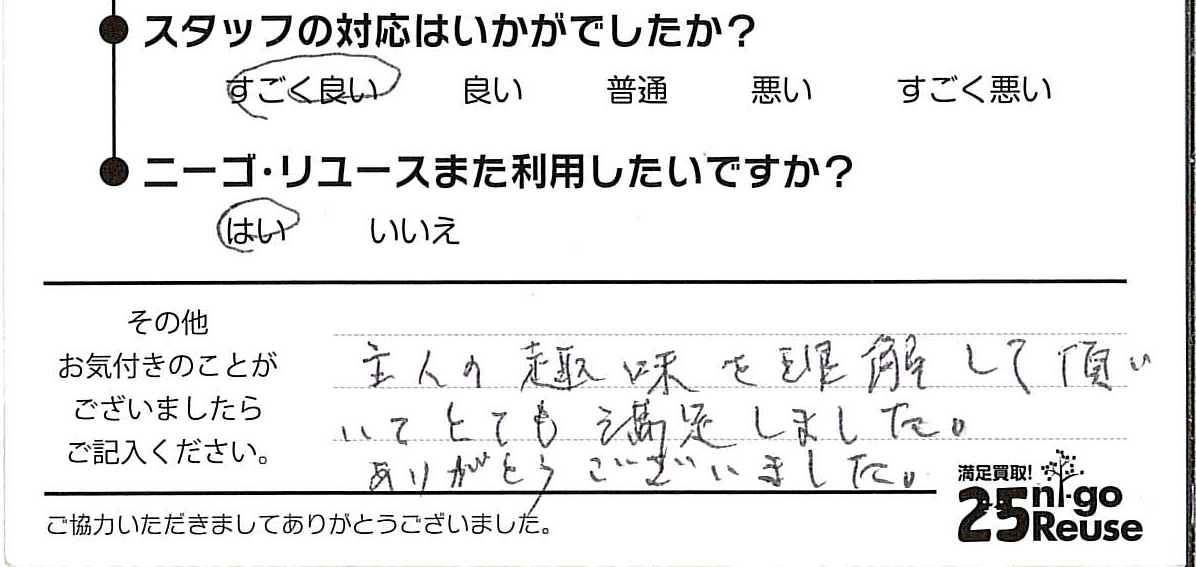 スタッフの対応はいかがでしたか？
すごく良い 良い 普通 悪い すごく悪い
ニーゴ・リユースまた利用したいですか？
はい いいえ
その他
お気付きのことが
ございましたら
ご記入ください。
主人の趣味を理解して頂い
いてとても満足しました。
ありがとうございいました。
ご協力いただきましてありがとうございました。
満足買取!
25 ni-go
Reuse